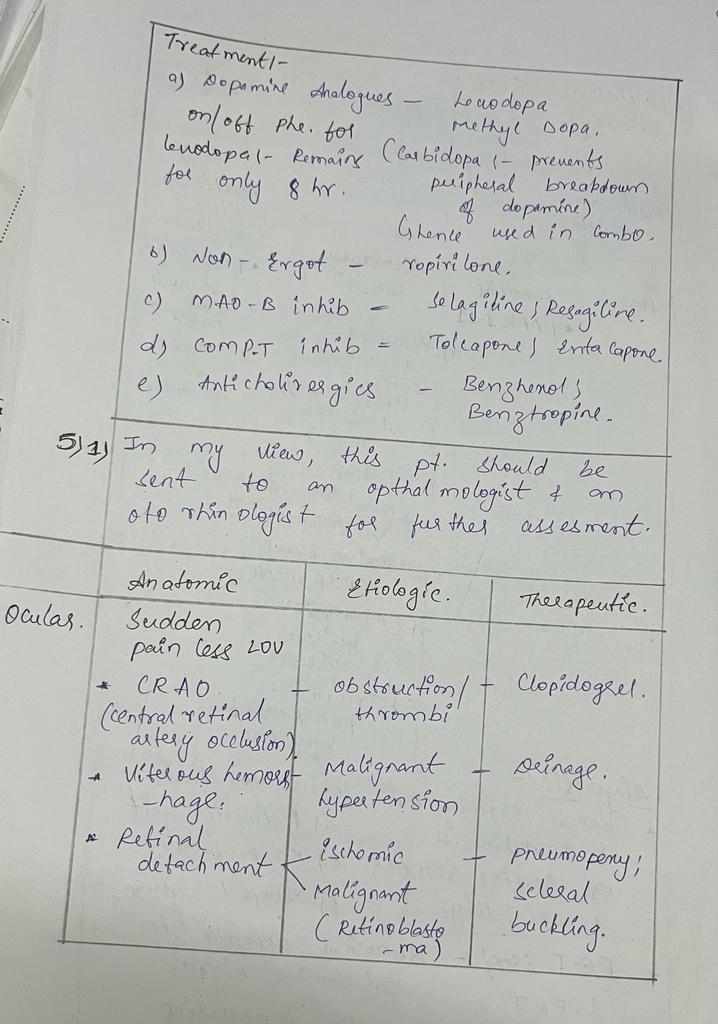 Treatment:-
a) Dopamine Analogues – Levodopa
on/off phe. for Methyl Dopa.
levodopa:- Remains (Carbidopa :- prevents
for only 8 hr. peripheral breakdown
of dopamine)
hence used in combo.
b) Non-Ergot – ropirilone.
c) MAO-B inhib = Selagiline, Resagiline.
d) COMP-T inhib = Tolcapone, Entacapone.
e) Anticholirergics – Benzhenol,
Benztropine.
5) 1) In my view, this pt. should be
sent to an opthalmologist & an
otorhinologist for further assesment.
Anatomic Etiologic. Therapeutic.
Ocular. Sudden
pain less LOV
* CRAO – obstruction/ – Clopidogrel.
(central retinal thrombi
artery occlusion)
* Viterous hemorr- Malignant – Drinage.
-hage. hypertension
* Retinal ischomic – pneumopexy;
detachment Malignant scleral
(Retinoblasto buckling.
-ma)